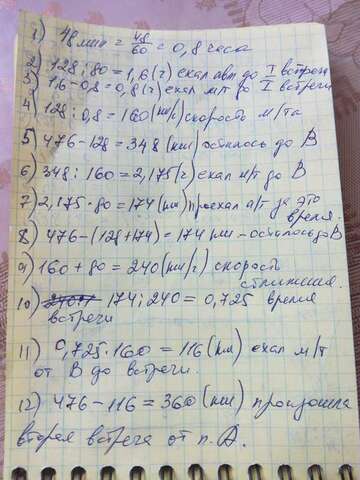 1) 48 мин = 48/60 = 0,8 часа
2) 128 : 80 = 1,6 (ч) ехал авт до I встречи
3) 1,6 - 0,8 = 0,8 (ч) ехал м/т до I встречи
4) 128 : 0,8 = 160 (км/ч) скорость м/та
5) 476 - 128 = 348 (км) осталось до В
6) 348 : 160 = 2,175 (ч) ехал м/т до В
7) 2,175 · 80 = 174 (км) проехал а/т за это
время.
8) 476 - (128 + 174) = 174 км - осталось до В
9) 160 + 80 = 240 (км/ч) скорость
сближения.
10) 174 : 240 = 0,725 время
встречи
11) 0,725 · 160 = 116 (км) ехал м/т
от В до встречи.
12) 476 - 116 = 360 (км) произошла
вторая встреча от п. А.